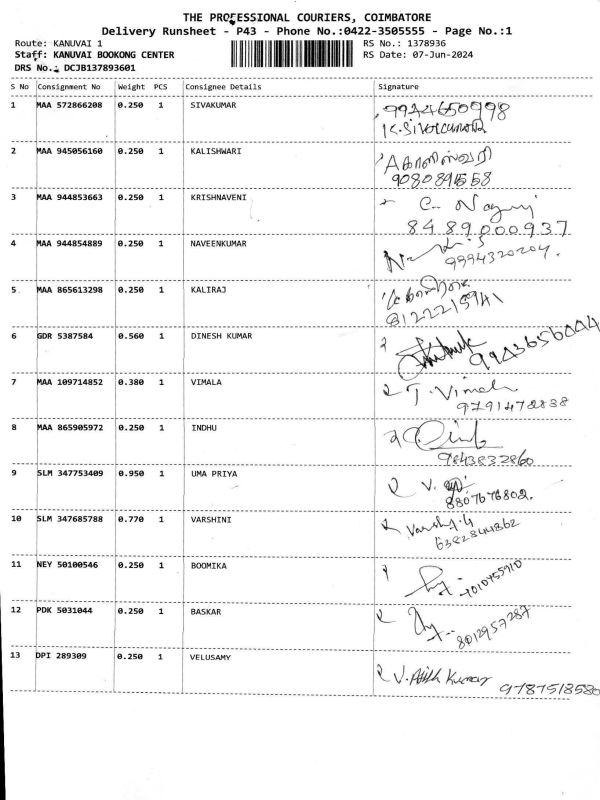 THE PROFESSIONAL COURIERS, COIMBATORE
Delivery Runsheet - P43 - Phone No.:0422-3505555 - Page No.:1
Route: KANUVAI 1
RS No.: 1378936
Staff: KANUVAI BOOKONG CENTER
RS Date: 07-Jun-2024
DRS No.: DCJB137893601
S No Consignment No Weight PCS Consignee Details Signature
1 MAA 572866208 0.250 1 SIVAKUMAR 9944650998
K.Sivakumar
2 MAA 945056160 0.250 1 KALISHWARI
9080891558
3 MAA 944853663 0.250 1 KRISHNAVENI
8489000937
4 MAA 944854889 0.250 1 NAVEENKUMAR
9994320204.
5 MAA 865613298 0.250 1 KALIRAJ
8122215941
6 GDR 5387584 0.560 1 DINESH KUMAR
9943656444
7 MAA 109714852 0.380 1 VIMALA T. Vimala
9791472838
8 MAA 865905972 0.250 1 INDHU
9843832860
9 SLM 347753409 0.950 1 UMA PRIYA V.
8807676802.
10 SLM 347685788 0.770 1 VARSHINI
6382844862
11 NEY 50100546 0.250 1 BOOMIKA
7010755910
12 PDK 5031044 0.250 1 BASKAR
8012957287
13 DPI 289309 0.250 1 VELUSAMY
V. Kumar 9787518580